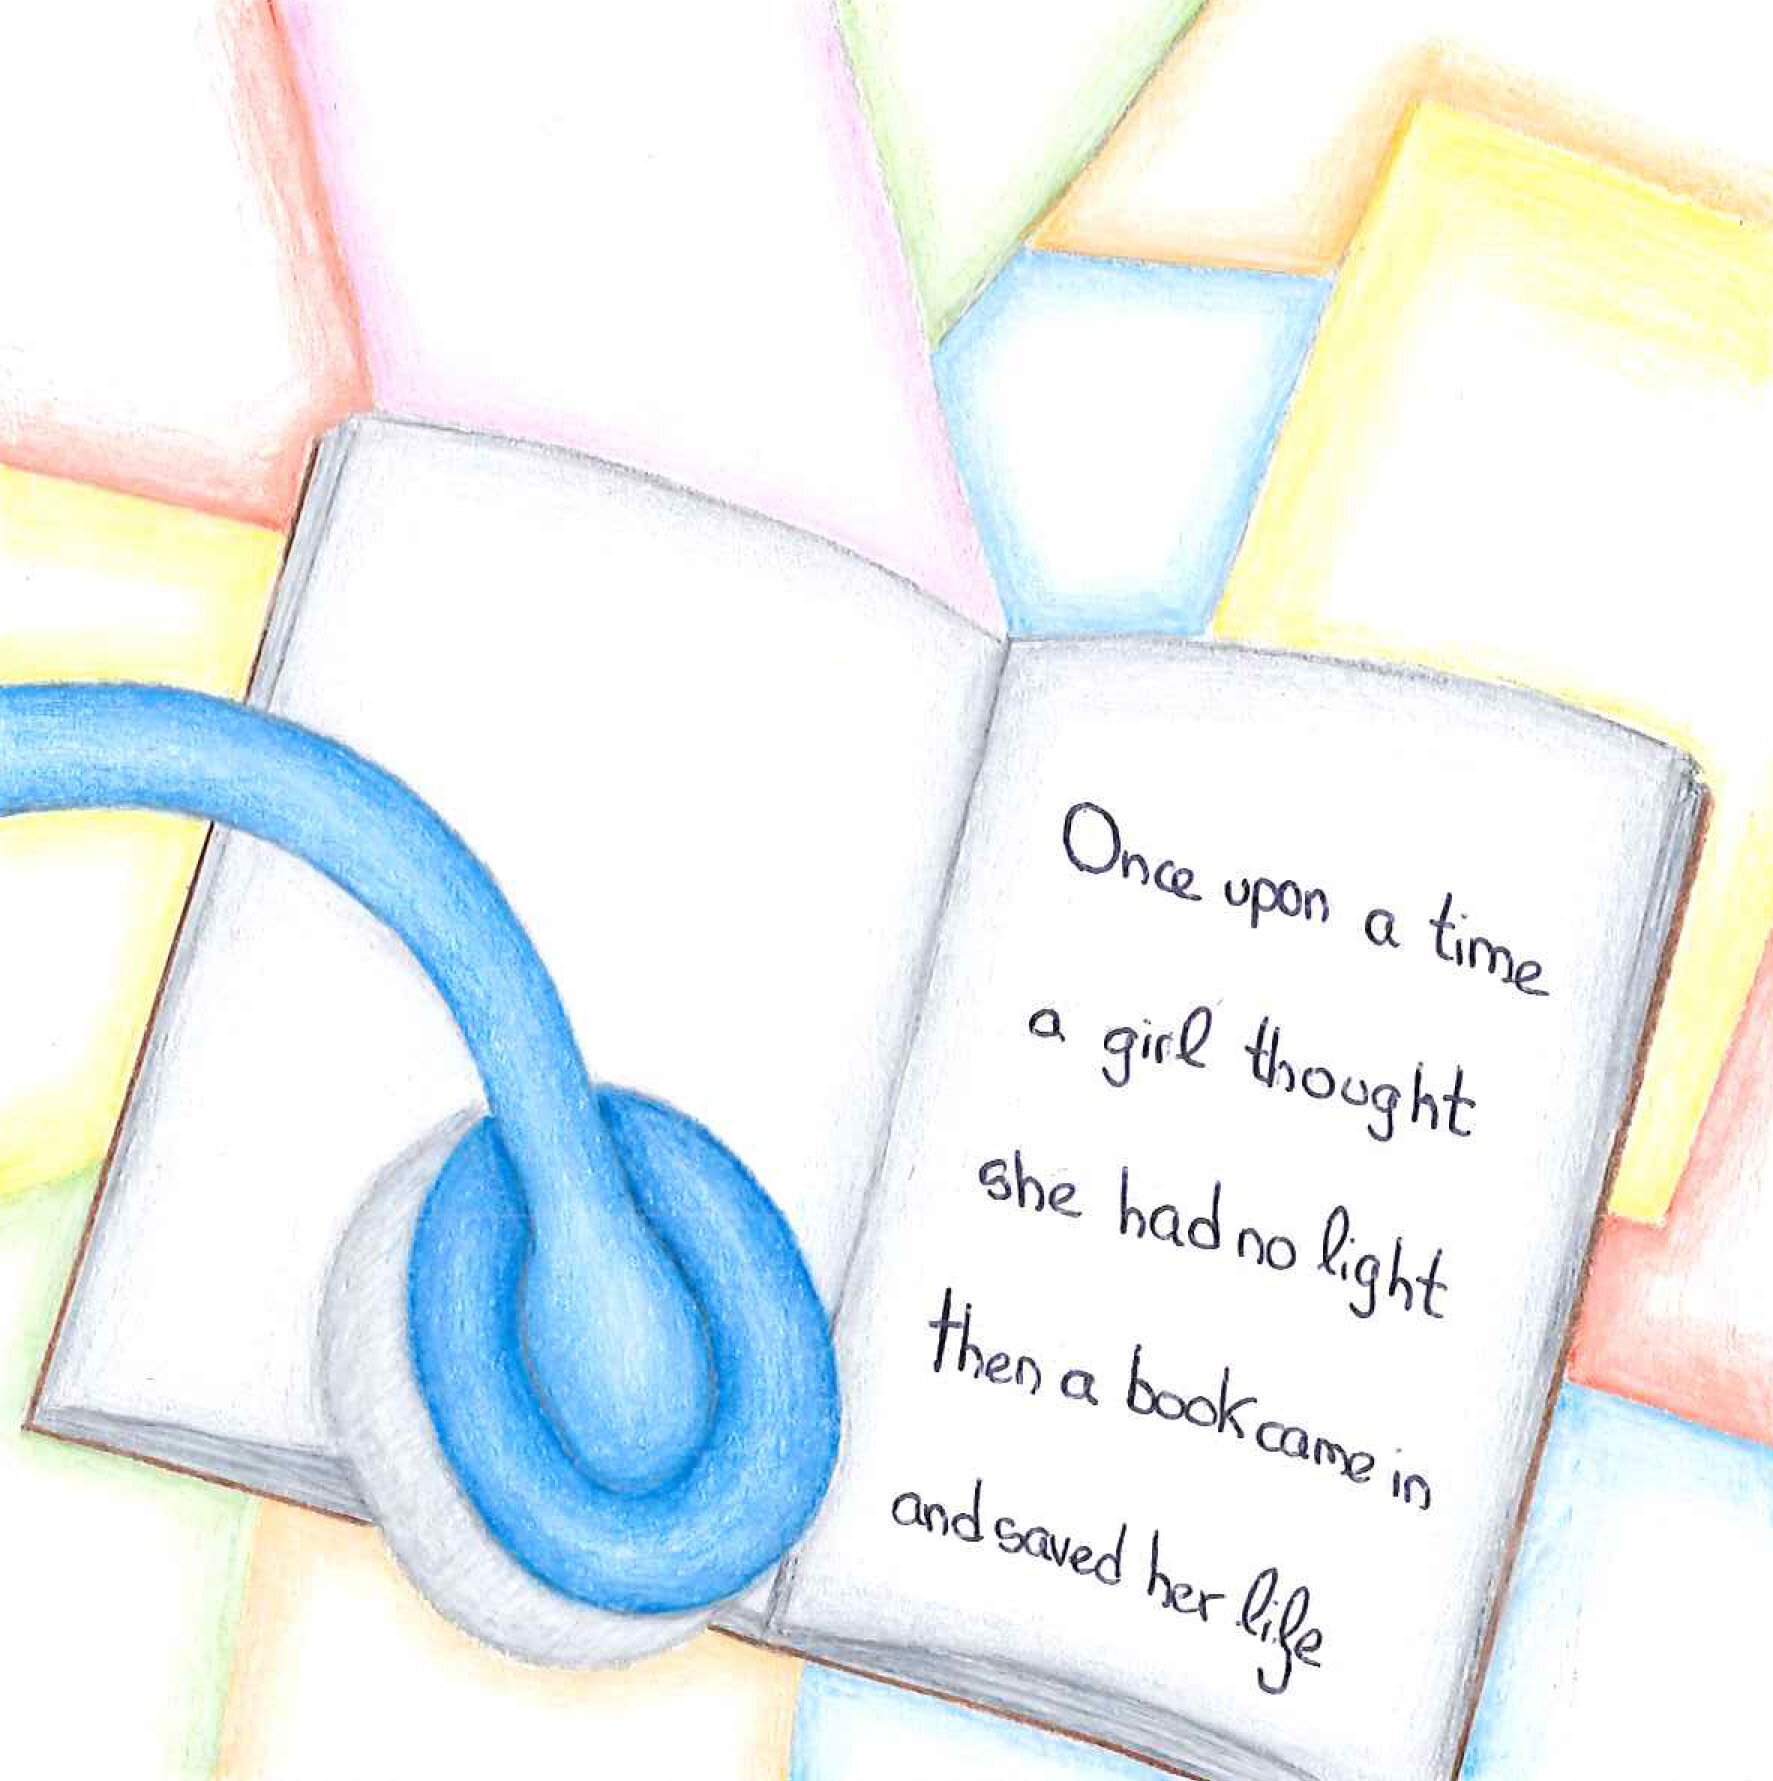 Once upon a time
a girl thought
she had no light
then a book came in
and saved her life